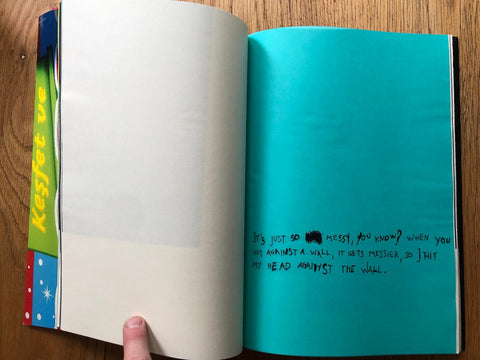 Keşfet ve
IT'S JUST SO MESSY, YOU KNOW? WHEN YOU
HIT AGAINST A WALL, IT GETS MESSIER, SO I HIT
MY HEAD AGAINST THE WALL.